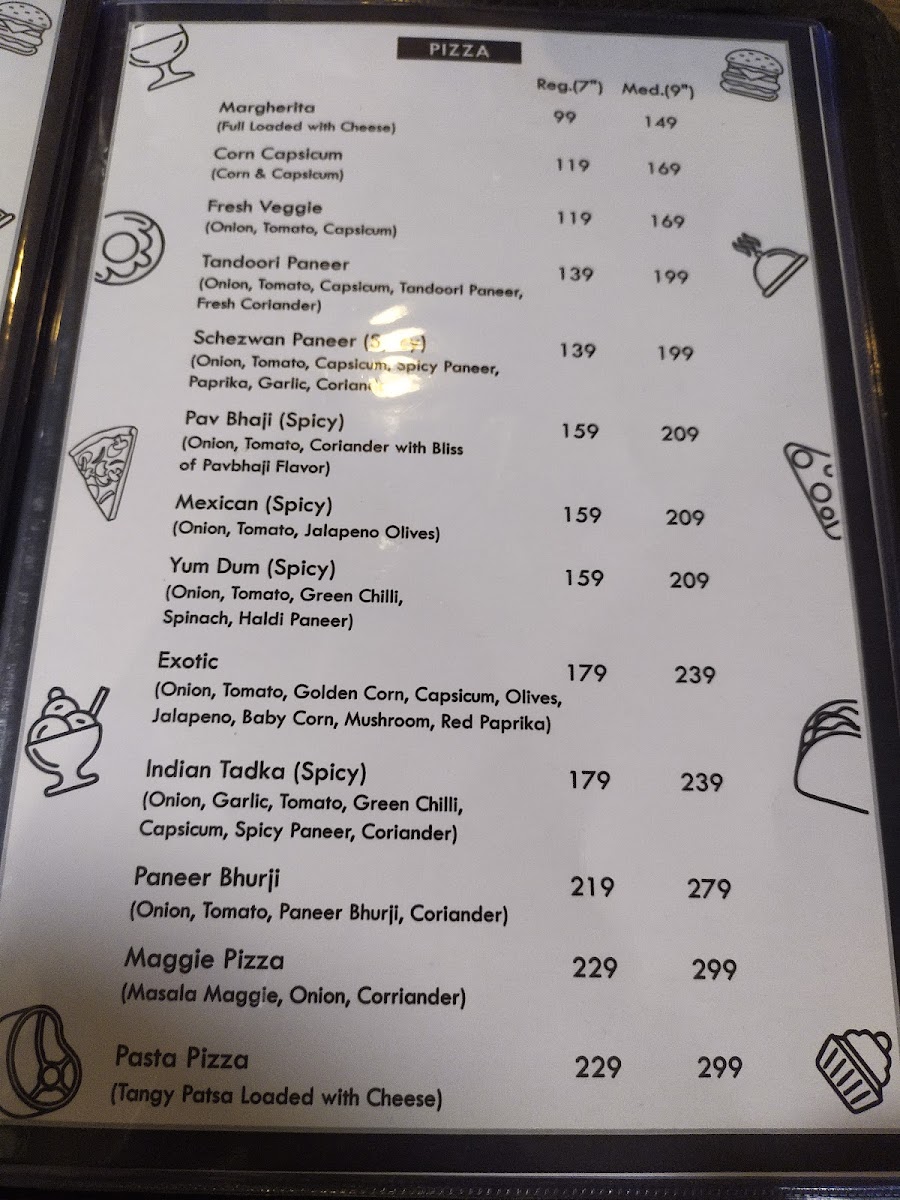 PIZZA
Reg.(7") Med.(9")
Margherita 99 149
(Full Loaded with Cheese)
Corn Capsicum 119 169
(Corn & Capsicum)
Fresh Veggie 119 169
(Onion, Tomato, Capsicum)
Tandoori Paneer 139 199
(Onion, Tomato, Capsicum, Tandoori Paneer,
Fresh Coriander)
Schezwan Paneer 139 199
(Onion, Tomato, Capsicum, Spicy Paneer,
Paprika, Garlic,
Pav Bhaji (Spicy) 159 209
(Onion, Tomato, Coriander with Bliss
of Pavbhaji Flavor)
Mexican (Spicy) 159 209
(Onion, Tomato, Jalapeno Olives)
Yum Dum (Spicy) 159 209
(Onion, Tomato, Green Chilli,
Spinach, Haldi Paneer)
Exotic 179 239
(Onion, Tomato, Golden Corn, Capsicum, Olives,
Jalapeno, Baby Corn, Mushroom, Red Paprika)
Indian Tadka (Spicy) 179 239
(Onion, Garlic, Tomato, Green Chilli,
Capsicum, Spicy Paneer, Coriander)
Paneer Bhurji 219 279
(Onion, Tomato, Paneer Bhurji, Coriander)
Maggie Pizza 229 299
(Masala Maggie, Onion, Corriander)
Pasta Pizza 229 299
(Tangy Patsa Loaded with Cheese)